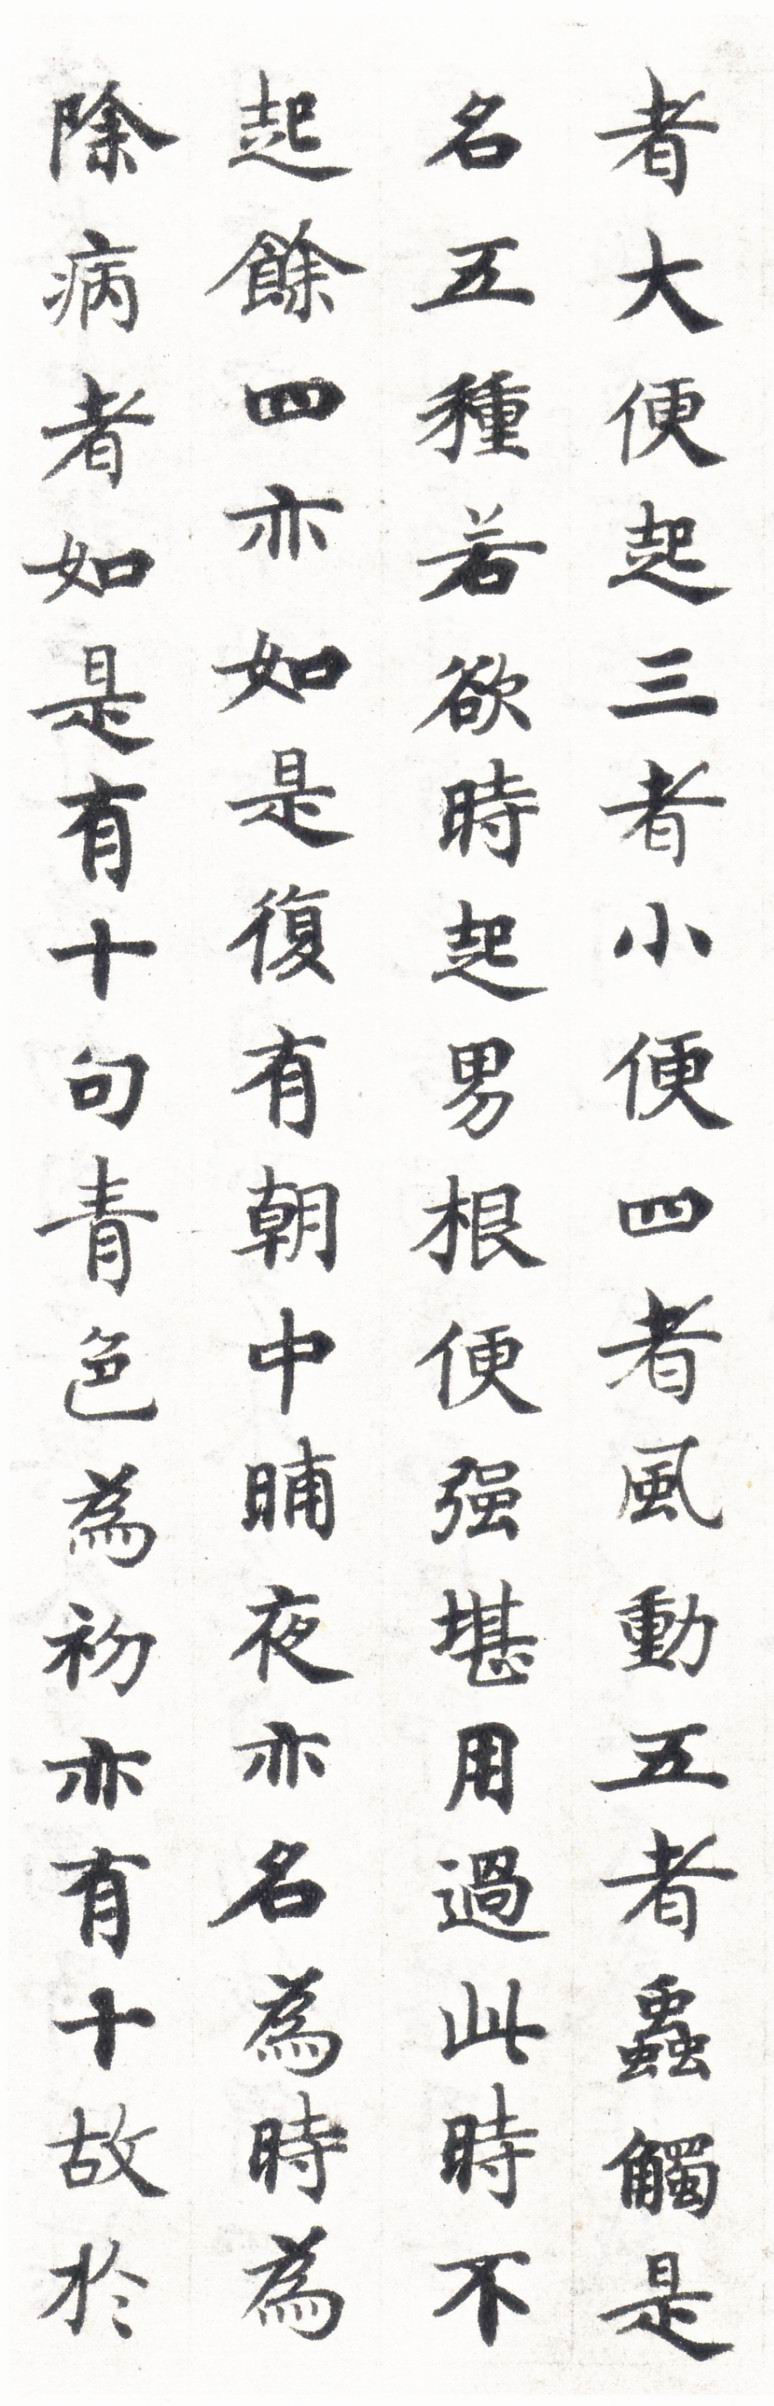 者大便起三者小便四者風動五者蟲觸是
名五種若欲時起男根便强堪用過此時不
起餘四亦如是復有朝中晡夜亦名為時為
除病者如是有十句青色為初亦有十故於